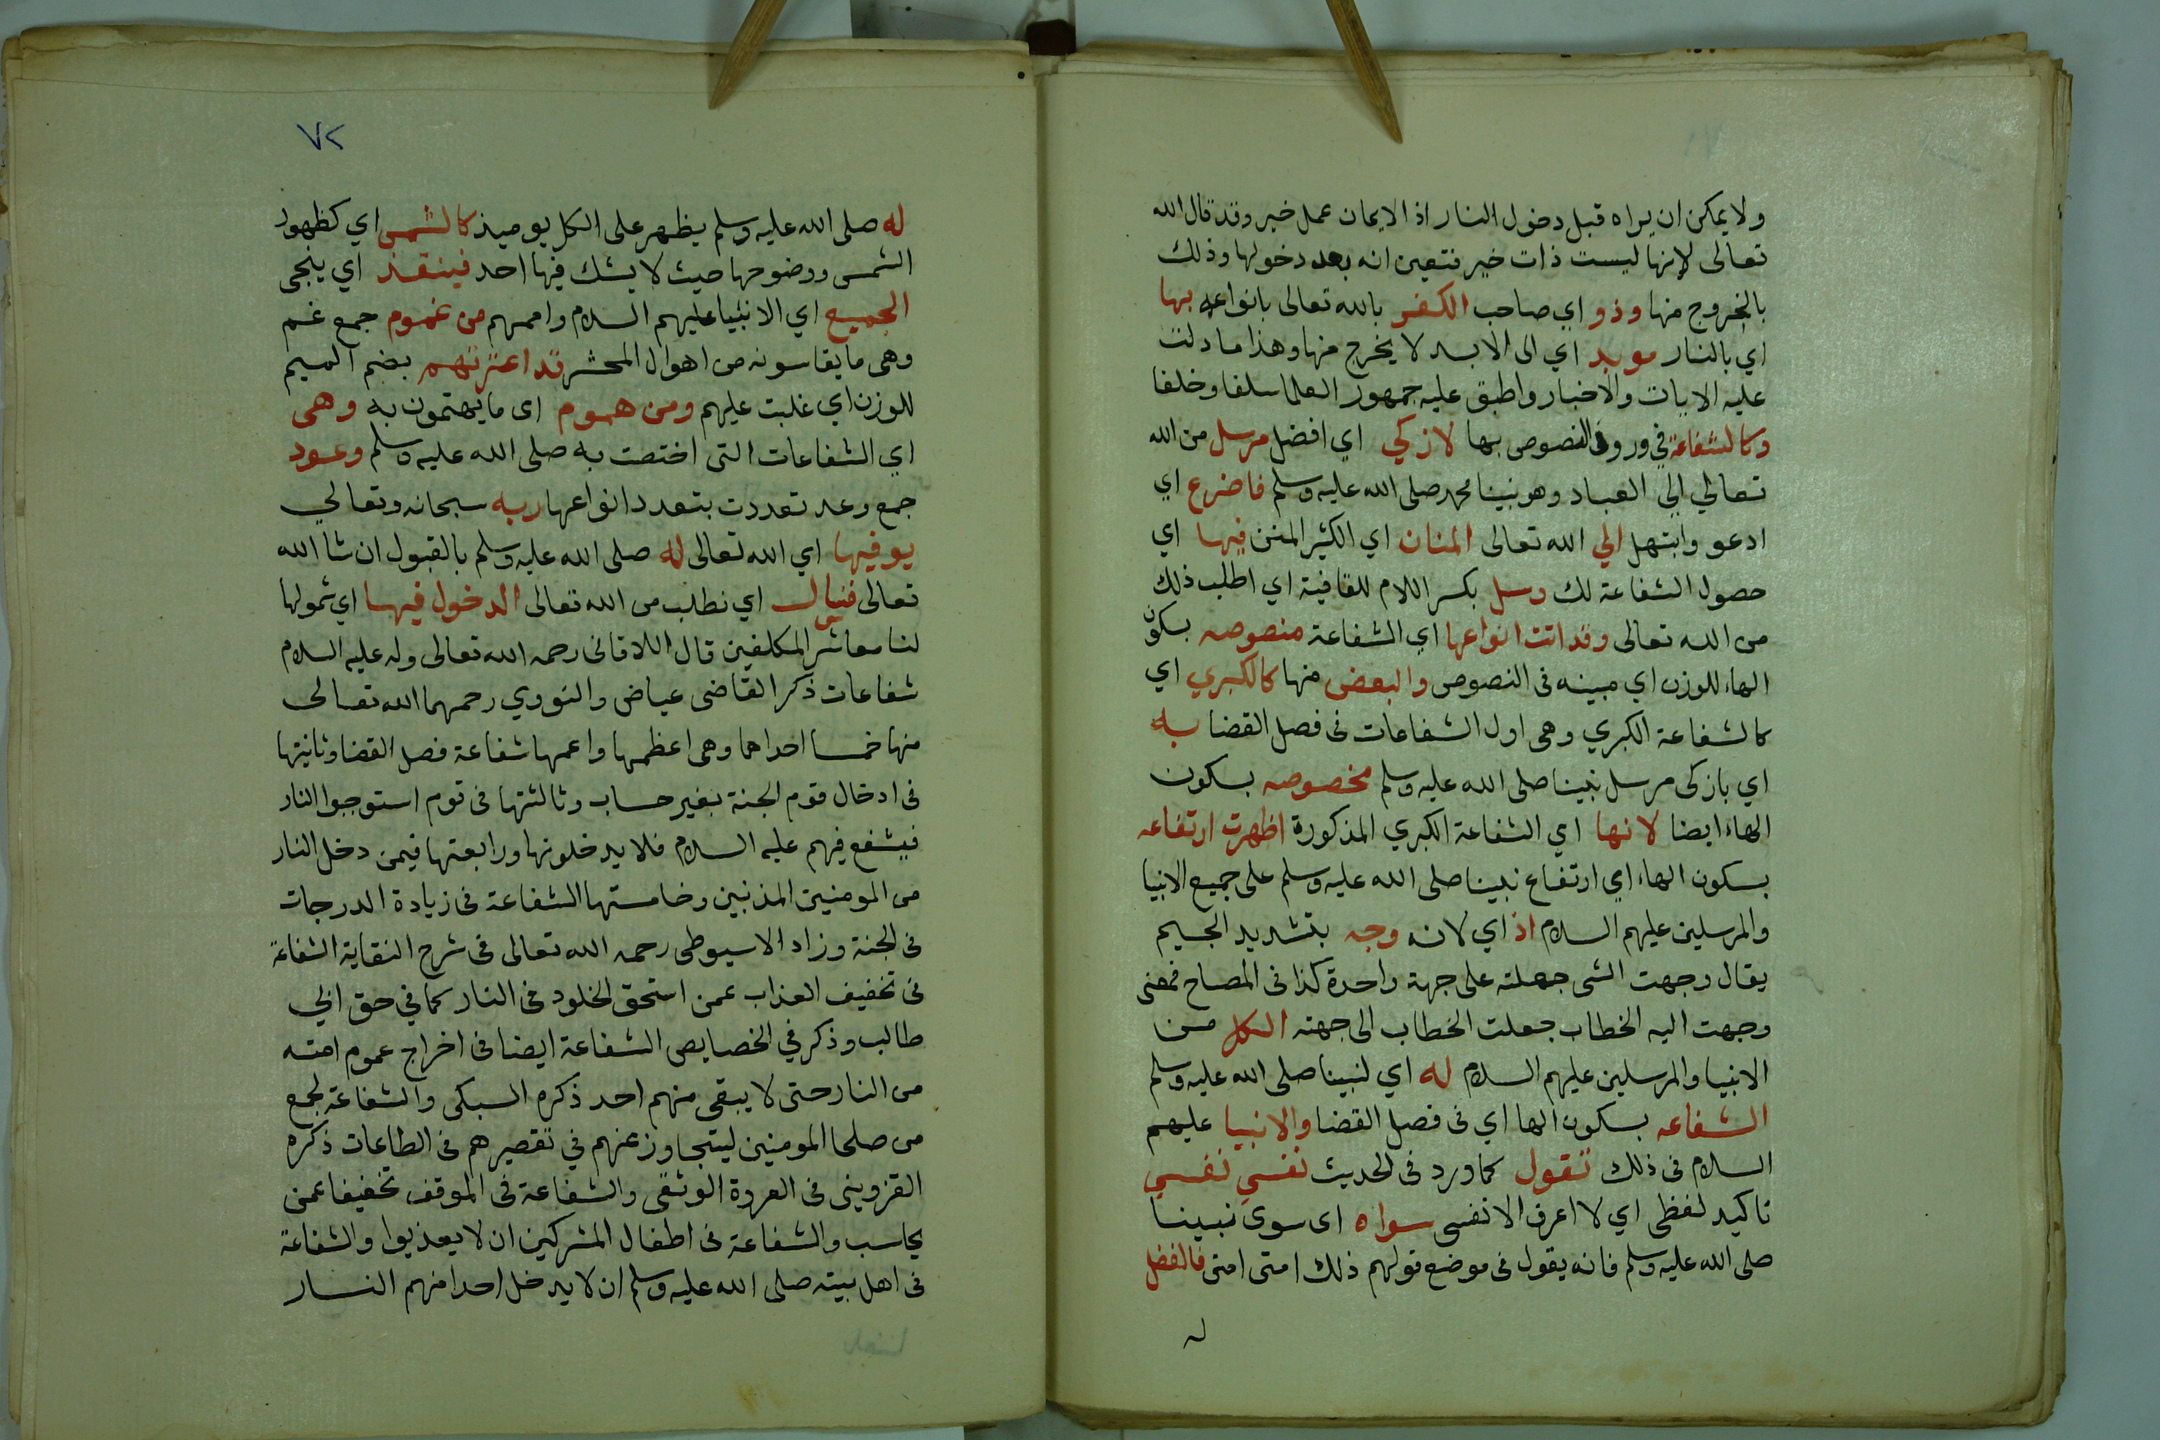 ولا يمكن ان يراه قبل دخول النار اذ الايمان عمل خير وقد قال الله
تعالى لانها ليست ذات خير فتعين انه بعد دخولها وذلك
بالخروج منها وذو اي صاحب الكفر بالله تعالى بانواعه بها
اي بالنار موبد اي الى الابد لا يخرج منها وهذا ما دلت
عليه الايات والاخبار واطبق عليه جمهور العلما سلفا وخلفا
وكالشفاعة في ورود النصوص بها لازكي اي افضل مرسل من الله
تعالي الي العباد وهو نبينا محمد صلى الله عليه وسلم فاضرع اي
ادعو وابتهل الي الله تعالى المنان اي الكثير المنن فيها اي
حصول الشفاعة لك وسل بكسر اللام للقافية اي اطلب ذلك
من الله تعالى وقد اتت انواعها اي الشفاعة منصوصه بسكون
الهاء للوزن اي مبينه في النصوص والبعض منها كالكبري اي
كالشفاعة الكبري وهى اول الشفاعات فى فصل القضا به
اي بازكى مرسل نبينا صلى الله عليه وسلم مخصوصه بسكون
الهاء ايضا لانها اي الشفاعة الكبري المذكورة اظهرت ارتفاعه
بسكون الهاء اي ارتفاع نبينا صلى الله عليه وسلم على جميع الانبيا
والمرسلين عليهم السلام اذ اي لانه وجه بتشديد الجيم
يقال وجهت الشى جعلته على جهة واحدة كذا فى المصباح فمعنى
وجهت اليه الخطاب جعلت الخطاب الى جهته الكل من
الانبيا والمرسلين عليهم السلام له اي لنبينا صلى الله عليه وسلم
الشفاعه بسكون الها اي فى فصل القضا والانبيا عليهم
السلام فى ذلك تقول كما ورد فى الحديث نفسي نفسي
تاكيد لفظى اي لا اعرف الا نفسى سواه اى سوى نبينا
صلى الله عليه وسلم فانه يقول فى موضع قولهم ذلك امتى امتى فالفضل
له
٧٢
له صلى الله عليه وسلم يظهر على الكل يوميذ كالشمس اي كظهور
الشمس ووضوحها حيث لا يشك فيها احد فينقذ اي ينجى
الجميع اي الانبيا عليهم السلام واممهم من غموم جمع غم
وهى ما يقاسونه من اهوال المحشر قد اعترتهم بضم الميم
للوزن اي غلبت عليهم ومن هموم اى ما يهتمون به وهى
اي الشفاعات التى اختصت به صلى الله عليه وسلم وعود
جمع وعد تعددت بتعدد انواعها ربه سبحانه وتعالي
يوفيها اي الله تعالى له صلى الله عليه وسلم بالقبول ان شا الله
تعالى فنسال اي نطلب من الله تعالى الدخول فيها اي شمولها
لنا معاشر المكلفين قال اللاقانى رحمه الله تعالى وله عليه السلام
شفاعات ذكر القاضى عياض والنووي رحمهما الله تعالى
منها خمسا احداها وهى اعظمها واعمها شفاعة فصل القضا وثانيتها
فى ادخال قوم الجنة بغير حساب وثالثتها فى قوم استوجبوا النار
فيشفع فيهم عليه السلام فلا يدخلونها ورابعتها فيمن دخل النار
من المومنين المذنبين وخامستها الشفاعة فى زيادة الدرجات
فى الجنة وزاد الاسيوطى رحمه الله تعالى فى شرح النقاية الشفاعة
فى تخفيف العذاب عمن استحق الخلود فى النار كما في حق ابي
طالب وذكر في الخصايص الشفاعة ايضا فى اخراج عموم امته
من النار حتى لا يبقى منهم احد ذكره السبكى والشفاعة لجمع
من صلحا المومنين ليتجاوز عنهم في تقصيرهم فى الطاعات ذكره
القزوينى فى العروة الوثقى والشفاعة فى الموقف تخفيفا عمن
يحاسب والشفاعة فى اطفال المشركين ان لا يعذبوا والشفاعة
فى اهل بيته صلى الله عليه وسلم ان لا يدخل احدا منهم النار